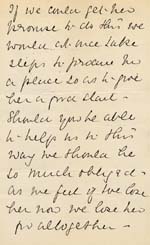 If we could get her
promise to do this we
would at once take
steps to procure her
a place so as to give
her a good start -
Should you be able
to help us in this
way we should be
so much obliged -
as we feel if we lose
her now we lose her
for altogether -